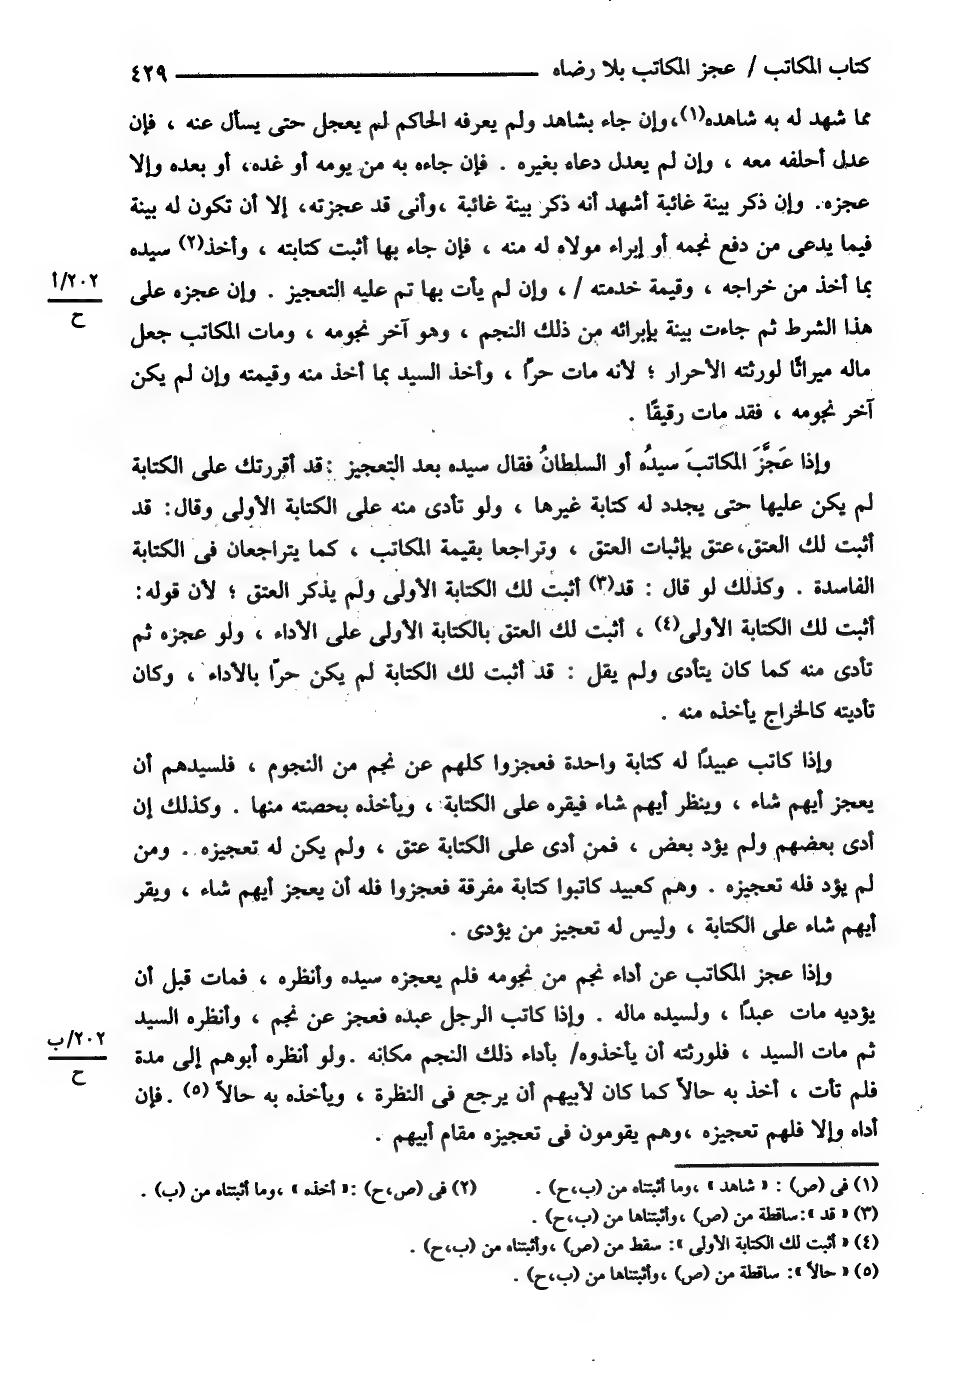 كتاب المكاتب / عجز المكاتب بلا رضاه ٤٢٩
مما شهد له به شاهده(١)،وإن جاء بشاهد ولم يعرفه الحاكم لم يعجل حتى يسأل عنه ، فإن
عدل أحلفه معه ، وإن لم يعدل دعاه بغيره . فإن جاءه به من يومه أو غده، أو بعده وإلا
عجزه. وإن ذكر بينة غائبة أشهد أنه ذكر بينة غائبة ،وأنى قد عجزته، إلا أن تكون له بينة
فيما يدعى من دفع نجمه أو إبراء مولاه له منه ، فإن جاء بها أثبت كتابته ، وأخذ(٢) سيده
بما أخذ من خراجه ، وقيمة خدمته /، وإن لم يأت بها تم عليه التعجيز . وإن عجزه على
٢٠٢/أ
ح
هذا الشرط ثم جاءت بينة بإبرائه من ذلك النجم ، وهو آخر نجومه ، ومات المكاتب جعل
ماله ميراثًا لورثته الأحرار ؛ لأنه مات حراً ، وأخذ السيد بما أخذ منه وقيمته وإن لم يكن
آخر نجومه ، فقد مات رقيقًا .
وإذا عَجَّزَ المكاتبَ سيدُه أو السلطانُ فقال سيده بعد التعجيز :قد أقررتك على الكتابة
لم يكن عليها حتى يجدد له كتابة غيرها ، ولو تأدى منه على الكتابة الأولى وقال: قد
أثبت لك العتق،عتق بإثبات العتق ، وتراجعا بقيمة المكاتب ، كما يتراجعان فى الكتابة
الفاسدة . وكذلك لو قال : قد(٣) أثبت لك الكتابة الأولى ولم يذكر العتق ؛ لأن قوله:
أثبت لك الكتابة الأولى(٤) ، أثبت لك العتق بالكتابة الأولى على الأداء ، ولو عجزه ثم
تأدى منه كما كان يتأدى ولم يقل : قد أثبت لك الكتابة لم يكن حرًا بالأداء ، وكان
تأديته كالخراج يأخذه منه .
وإذا كاتب عبيدًا له كتابة واحدة فعجزوا كلهم عن نجم من النجوم ، فلسيدهم أن
يعجز أيهم شاء ، وينظر أيهم شاء فيقره على الكتابة ، ويأخذه بحصته منها . وكذلك إن
أدى بعضهم ولم يؤد بعض ، فمن أدى على الكتابة عتق ، ولم يكن له تعجيزه . ومن
لم يؤد فله تعجيزه . وهم كعبيد كاتبوا كتابة مفرقة فعجزوا فله أن يعجز أيهم شاء ، ويقر
أيهم شاء على الكتابة ، وليس له تعجيز من يؤدى .
وإذا عجز المكاتب عن أداء نجم من نجومه فلم يعجزه سيده وأنظره ، فمات قبل أن
يؤديه مات عبدًا ، ولسيده ماله . وإذا كاتب الرجل عبده فعجز عن نجم ، وأنظره السيد
ثم مات السيد ، فلورثته أن يأخذوه/ بأداء ذلك النجم مكانه .ولو أنظره أبوهم إلى مدة
٢٠٢/ب
ح
فلم تأت ، أخذ به حالاً كما كان لأبيهم أن يرجع فى النظرة ، ويأخذه به حالاً (٥) .فإن
أداه وإلا فلهم تعجيزه ،وهم يقومون فى تعجيزه مقام أبيهم .
(١) فى (ص) : « شاهد » ،وما أثبتناه من (ب،ح) . (٢) فى (ص،ح) :« أخذه » ،وما أثبتناه من (ب) .
(٣) « قد »:ساقطة من (ص) ،وأثبتناها من (ب،ح) .
(٤) « أثبت لك الكتابة الأولى »: سقط من (ص) ،وأثبتناه من (ب،ح) .
(٥) « حالاً »: ساقطة من (ص) ،وأثبتناها من (ب،ح) .